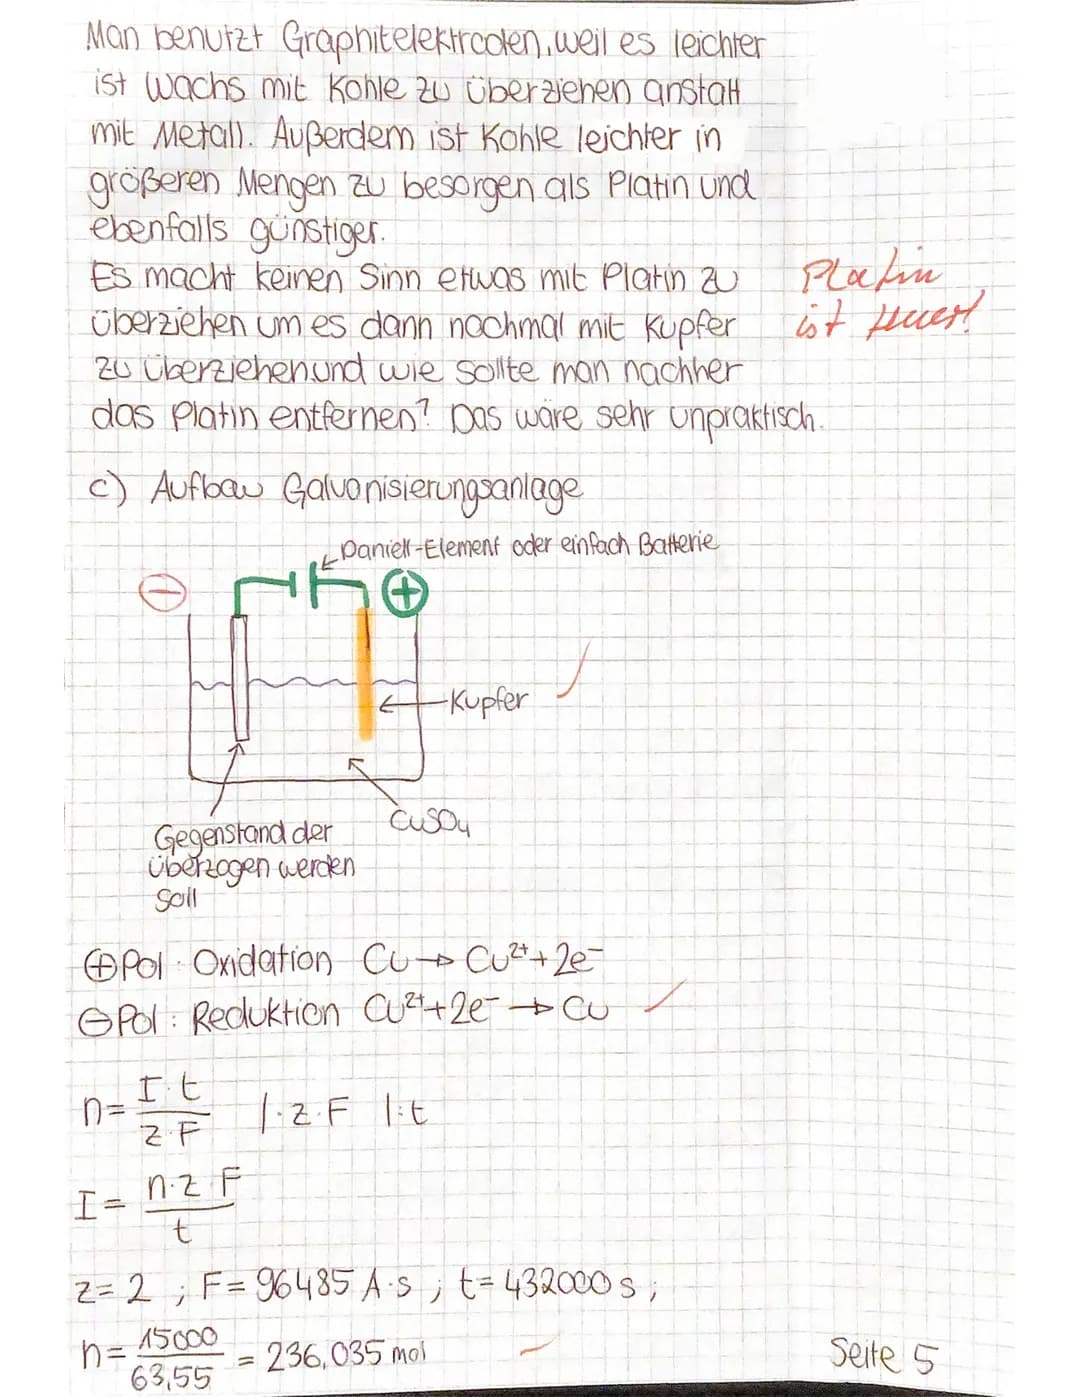 Man benutzt Graphitelektroden, weil es leichter
ist Wachs mit Kohle zu überziehen anstatt
mit Metall. Außerdem ist Kohle leichter in
größeren Mengen zu besorgen als Platin und
ebenfalls günstiger.
Es macht keinen Sinn etwas mit Platin zu
überziehen um es dann nochmal mit Kupfer
zu überziehen und wie sollte man nachher
das Platin entfernen? Das wäre sehr unpraktisch.
Platin
ist teuer!
c) Aufbau Galvanisierungsanlage
Daniell-Element oder einfach Batterie
⊖ ⊕
Kupfer
CuSO4
Gegenstand der
überzogen werden
soll
⊕Pol: Oxidation Cu → Cu²⁺ + 2e⁻
⊖Pol: Reduktion Cu²⁺ + 2e⁻ → Cu
n = I·t / z·F |·z·F |:t
I = n·z·F / t
z = 2 ; F = 96485 A·s ; t = 432000 s ;
n = 15000 / 63,55 = 236,035 mol
Seite 5